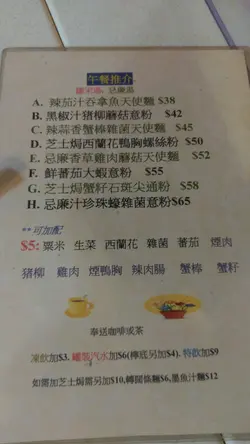 午餐推介
羅宋湯/忌廉湯
A. 辣茄汁吞拿魚天使麵 $38
B. 黑椒汁猪柳蘑菇意粉 $42
C. 辣蒜香蟹棒雜菌天使麵 $45
D. 芝士焗西蘭花鴨胸螺絲粉 $50
E. 忌廉香草雞肉蘑菇天使麵 $52
F. 鮮蕃茄大蝦意粉 $55
G. 芝士焗蟹籽石斑尖通粉 $58
H. 忌廉汁珍珠蠔雜菌意粉$65
**可加配
$5: 粟米 生菜 西蘭花 雜菌 蕃茄 煙肉
猪柳 雞肉 煙鴨胸 辣肉腸 蟹棒 蟹籽
奉送咖啡或茶
凍飲加$3. 罐裝汽水加$6(轉底另加$4). 特飲加$9
如需加芝士焗需另加$10,轉闊條麵$6,墨魚汁麵$12